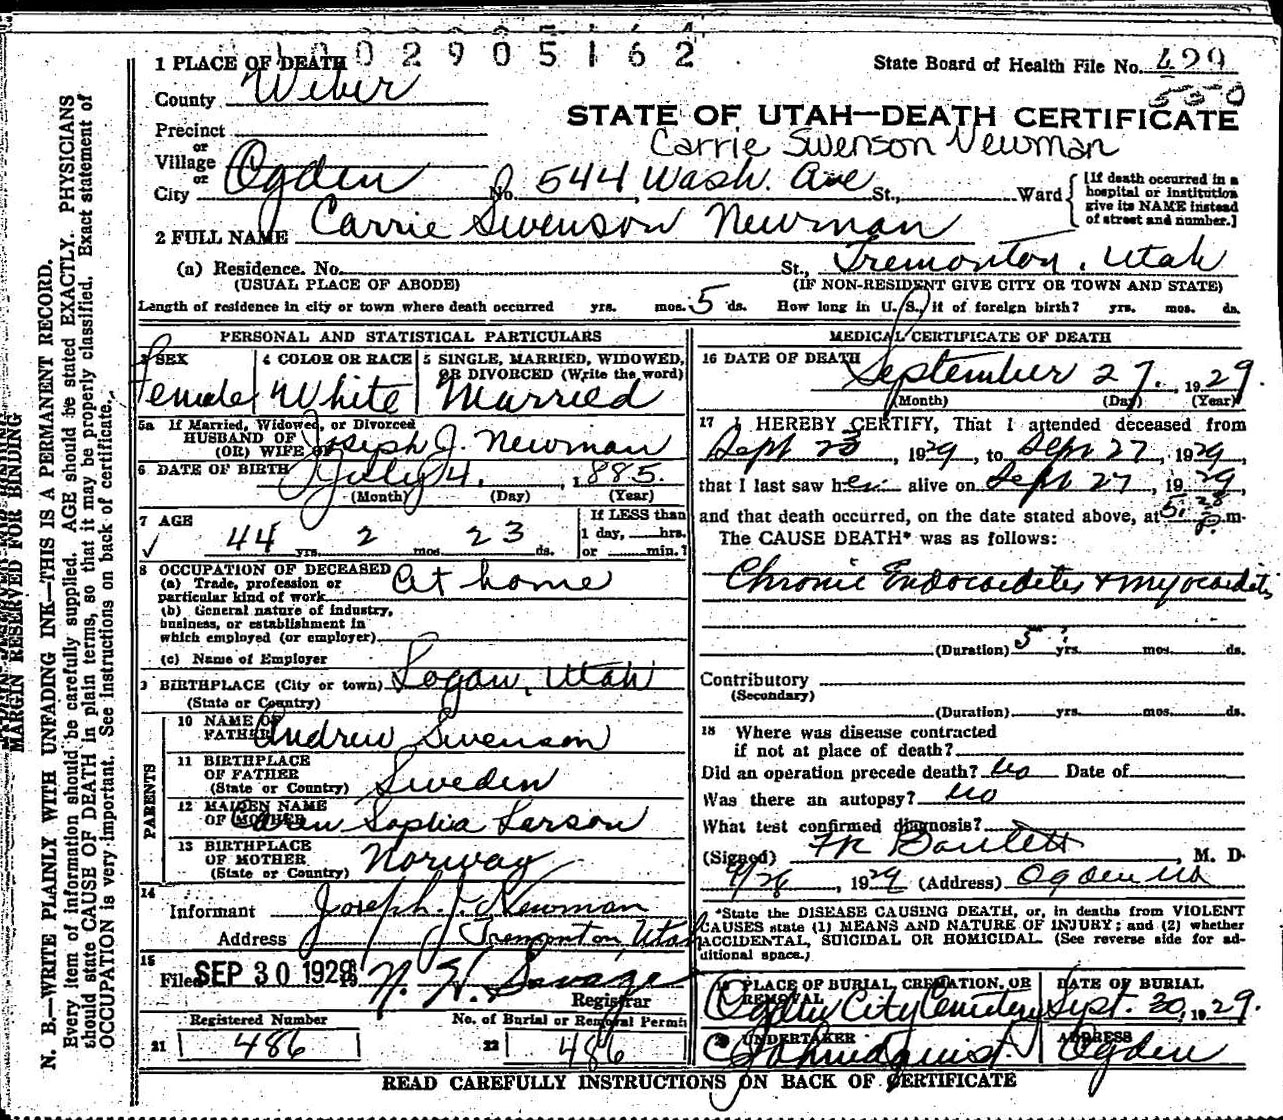 1002905162
1 PLACE OF DEATH
State Board of Health File No. 429
550
County Weber
STATE OF UTAH—DEATH CERTIFICATE
Precinct
Carrie Swenson Newman
or
Village
or
City Ogden No. 544 Wash. Ave St., Ward
[If death occurred in a hospital or institution give its NAME instead of street and number.]
2 FULL NAME Carrie Swenson Newman
(a) Residence. No. St., Tremonton, Utah
(USUAL PLACE OF ABODE) (IF NON-RESIDENT GIVE CITY OR TOWN AND STATE)
Length of residence in city or town where death occurred yrs. mos. 5 ds. How long in U. S., if of foreign birth? yrs. mos. ds.
PERSONAL AND STATISTICAL PARTICULARS
3 SEX
Female
4 COLOR OR RACE
White
5 SINGLE, MARRIED, WIDOWED,
OR DIVORCED (Write the word)
Married
5a If Married, Widowed, or Divorced
HUSBAND OF
(OR) WIFE OF Joseph J. Newman
6 DATE OF BIRTH July 4, 1885.
(Month) (Day) (Year)
7 AGE
44 yrs. 2 mos. 23 ds.
If LESS than
1 day, hrs.
or min.?
8 OCCUPATION OF DECEASED
(a) Trade, profession or
particular kind of work At home
(b) General nature of industry,
business, or establishment in
which employed (or employer)
(c) Name of Employer
9 BIRTHPLACE (City or town) Logan, Utah
(State or Country)
PARENTS
10 NAME OF
FATHER Andrew Swenson
11 BIRTHPLACE
OF FATHER
(State or Country) Sweden
12 MAIDEN NAME
OF MOTHER Caren Sophia Larson
13 BIRTHPLACE
OF MOTHER
(State or Country) Norway
14
Informant Joseph J. Newman
Address Tremonton, Utah
15
Filed SEP 30 1929 N. H. Savage
Registrar
Registered Number
21 486
No. of Burial or Removal Permit
22 486
MEDICAL CERTIFICATE OF DEATH
16 DATE OF DEATH September 27, 1929.
(Month) (Day) (Year)
17 I HEREBY CERTIFY, That I attended deceased from
Sept 23, 1929, to Sept 27, 1929,
that I last saw her alive on Sept 27, 1929,
and that death occurred, on the date stated above, at 5:28 p.m.
The CAUSE DEATH* was as follows:
Chronic Endocarditis + myocarditis
(Duration) 5 yrs. mos. ds.
Contributory
(Secondary)
(Duration) yrs. mos. ds.
18 Where was disease contracted
if not at place of death?
Did an operation precede death? No Date of
Was there an autopsy? No
What test confirmed diagnosis?
(Signed) Bartlett, M. D.
9/28, 1929 (Address) Ogden
*State the DISEASE CAUSING DEATH, or, in deaths from VIOLENT
CAUSES state (1) MEANS AND NATURE OF INJURY; and (2) whether
ACCIDENTAL, SUICIDAL OR HOMICIDAL. (See reverse side for ad-
ditional space.)
19 PLACE OF BURIAL, CREMATION, OR
REMOVAL
Ogden City Cemetery
DATE OF BURIAL
Sept. 30, 1929.
20 UNDERTAKER
ADDRESS
Ogden
READ CAREFULLY INSTRUCTIONS ON BACK OF CERTIFICATE
MARGIN RESERVED FOR BINDING
N. B.—WRITE PLAINLY WITH UNFADING INK—THIS IS A PERMANENT RECORD.
Every item of information should be carefully supplied. AGE should be stated EXACTLY. PHYSICIANS
should state CAUSE OF DEATH in plain terms, so that it may be properly classified. Exact statement of
OCCUPATION is very important. See instructions on back of certificate.